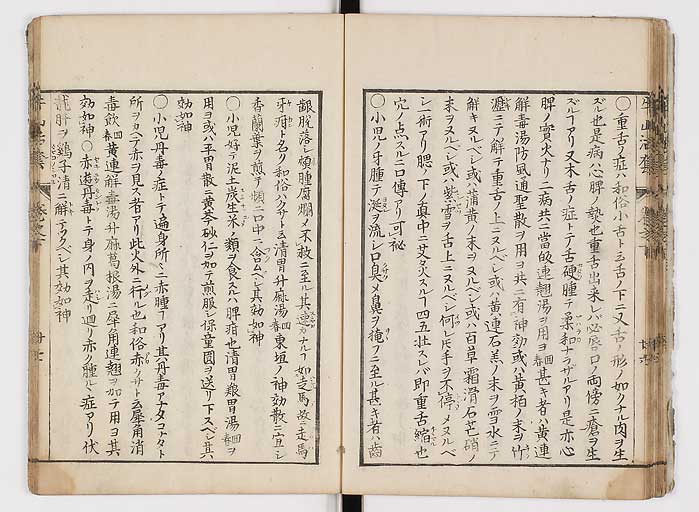 ○重舌ノ症ハ和俗小舌ト云舌ノ下ニ又舌ノ形ノ如クナル肉ヲ生
ズル也是病心脾ノ熱也重舌出来レバ必唇口ノ両傍ニ瘡ヲ生
ズルヿアリ又木舌ノ症トテ舌硬腫テ柔和ナラザルアリ是亦心
脾ノ實火ナリ二病共ニ當皈連翹湯ヲ用ヨ甚キ者ハ黄連
解毒湯防風通聖散ヲ用ヨ共ニ有神効或ハ黄栢ノ末ヲ竹
瀝ニテ解テ重舌ノ上ニヌルベシ或ハ黄連石羔ノ末ヲ雪水ニテ
解キヌルベシ或ハ蒲黄ノ末ヲヌルベシ或ハ百草霜滑石芒硝ノ
末ヲヌルベシ或ハ紫雪ヲ舌上ニヌルベシ何レモ手ヲ不停メヌルベ
シ一術アリ腮ノ下ノ眞中ニ丈灸スルヿ四五壮スレバ即重舌縮也
穴ノ点スルニ口傳アリ可秘
○小児ノ牙腫テ涎ヲ流シ口臭メ鼻ヲ掩フニ至ル甚キ者ハ齒
齦脱落シ頬腫腐爛メ不救ニ至ル其速カナルヿ如走馬故ニ走馬
牙疳ト名ク和俗ハクサト云清胃升麻湯東垣ノ神効散ニ宜シ
香蘭葉ヲ煎テ頻ニ口中ニ含ムベシ其効如神
○小児好テ泥土炭生米ノ類ヲ食スルハ脾疳也清胃養胃湯ヲ
用ヨ或ハ平胃散ニ黄芩砂仁ヲ加テ煎服シ保童圓ヲ送リ下スベシ其
効如神
○小児丹毒ノ症トテ遍身所々ニ赤腫ルヿアリ其丹毒アナタコナタト
所ヲカヘテ赤ヲ見ス者アリ此火外ニ行ル也和俗赤クサト云犀角消
毒飲黄連解毒湯升麻葛根湯ニ犀角連翹ヲ加テ用ヨ其
効如神○赤遊丹毒トテ身ノ内ヲ走リ廻リ赤ク腫ル症アリ伏
龍肝ヲ鷄子清ニ解テヌクベシ其効如神